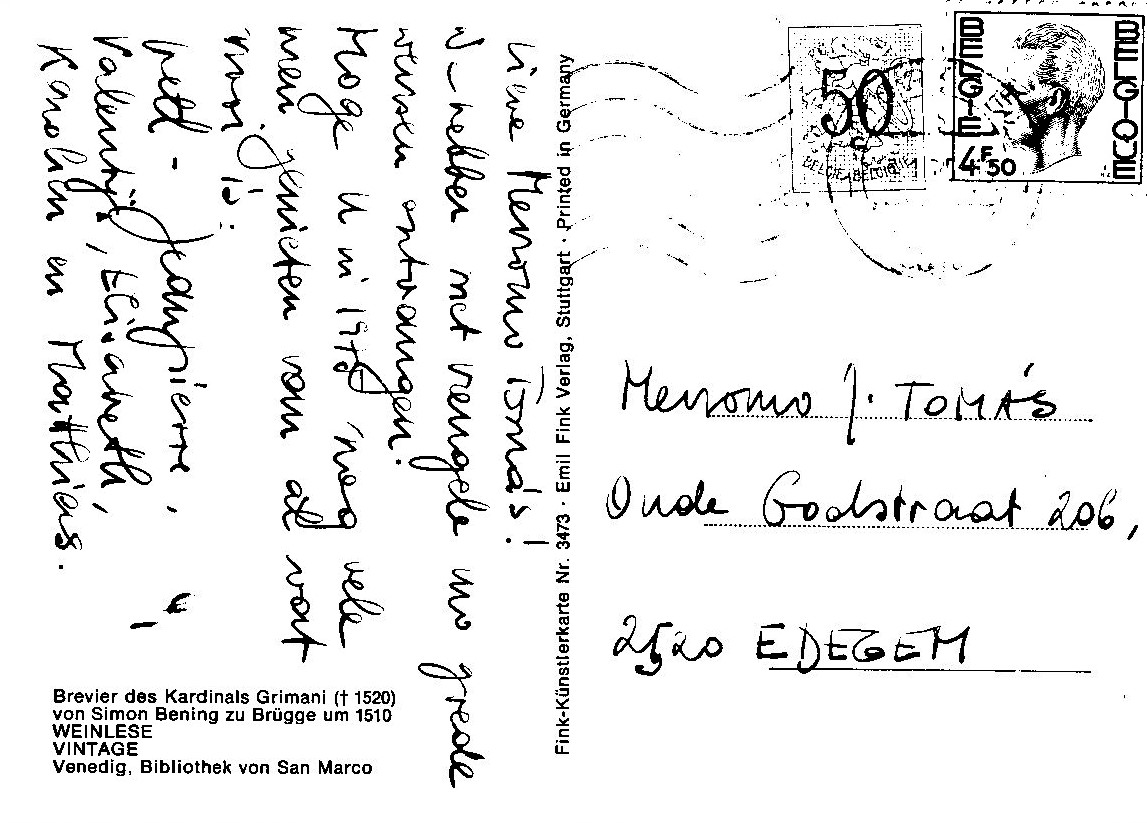 Lieve Mevrouw Tomás!
U hebben met vreugde uw goede
wensen ontvangen!
Moge U in 1978 nog vele
men genieten van al wat
mooi is!
Jeanpierre,
Valentijn, Elisabeth,
Karolien en Matthias.
Brevier des Kardinals Grimani († 1520)
von Simon Bening zu Brügge um 1510
WEINLESE
VINTAGE
Venedig, Bibliothek von San Marco
Fink-Künstlerkarte Nr. 3473 · Emil Fink Verlag, Stuttgart · Printed in Germany
50
c
BELGIE-BELGIQUE
BELGIE
BELGIQUE
4F50
Mevrouw J. TOMÁS
Oude Godstraat 206,
2520 EDEGEM